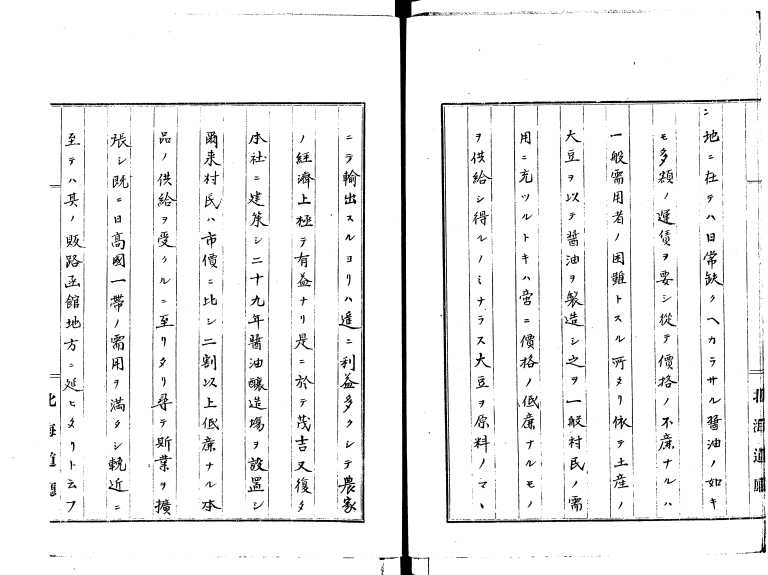 地ニ在テハ日常缺クヘカラサル醬油ノ如キ
モ多額ノ運賃ヲ要シ從テ價格ノ不廉ナルハ
一般需用者ノ困難トスル所タリ依テ土産ノ
大豆ヲ以テ醬油ヲ製造シ之ヲ一般村民ノ需
用ニ充ツルトキハ啻ニ價格ノ低廉ナルモノ
ヲ供給シ得ルノミナラス大豆ヲ原料ノマヽ
ニテ輸出スルヨリハ遥ニ利益多クシテ農家
ノ經濟上極テ有益ナリ是ニ於テ茂吉又復タ
本社ニ建築シ二十九年醬油釀造場ヲ設置シ
爾来村民ハ市價ニ比シ二割以上低廉ナル本
品ノ供給ヲ受クルニ至リタリ尋テ斯業ヲ擴
張シ既ニ日高國一帶ノ需用ヲ滿タシ輓近ニ
至テハ其ノ販路函館地方ニ延ヒタリト云フ
北海道廳
北海道廳